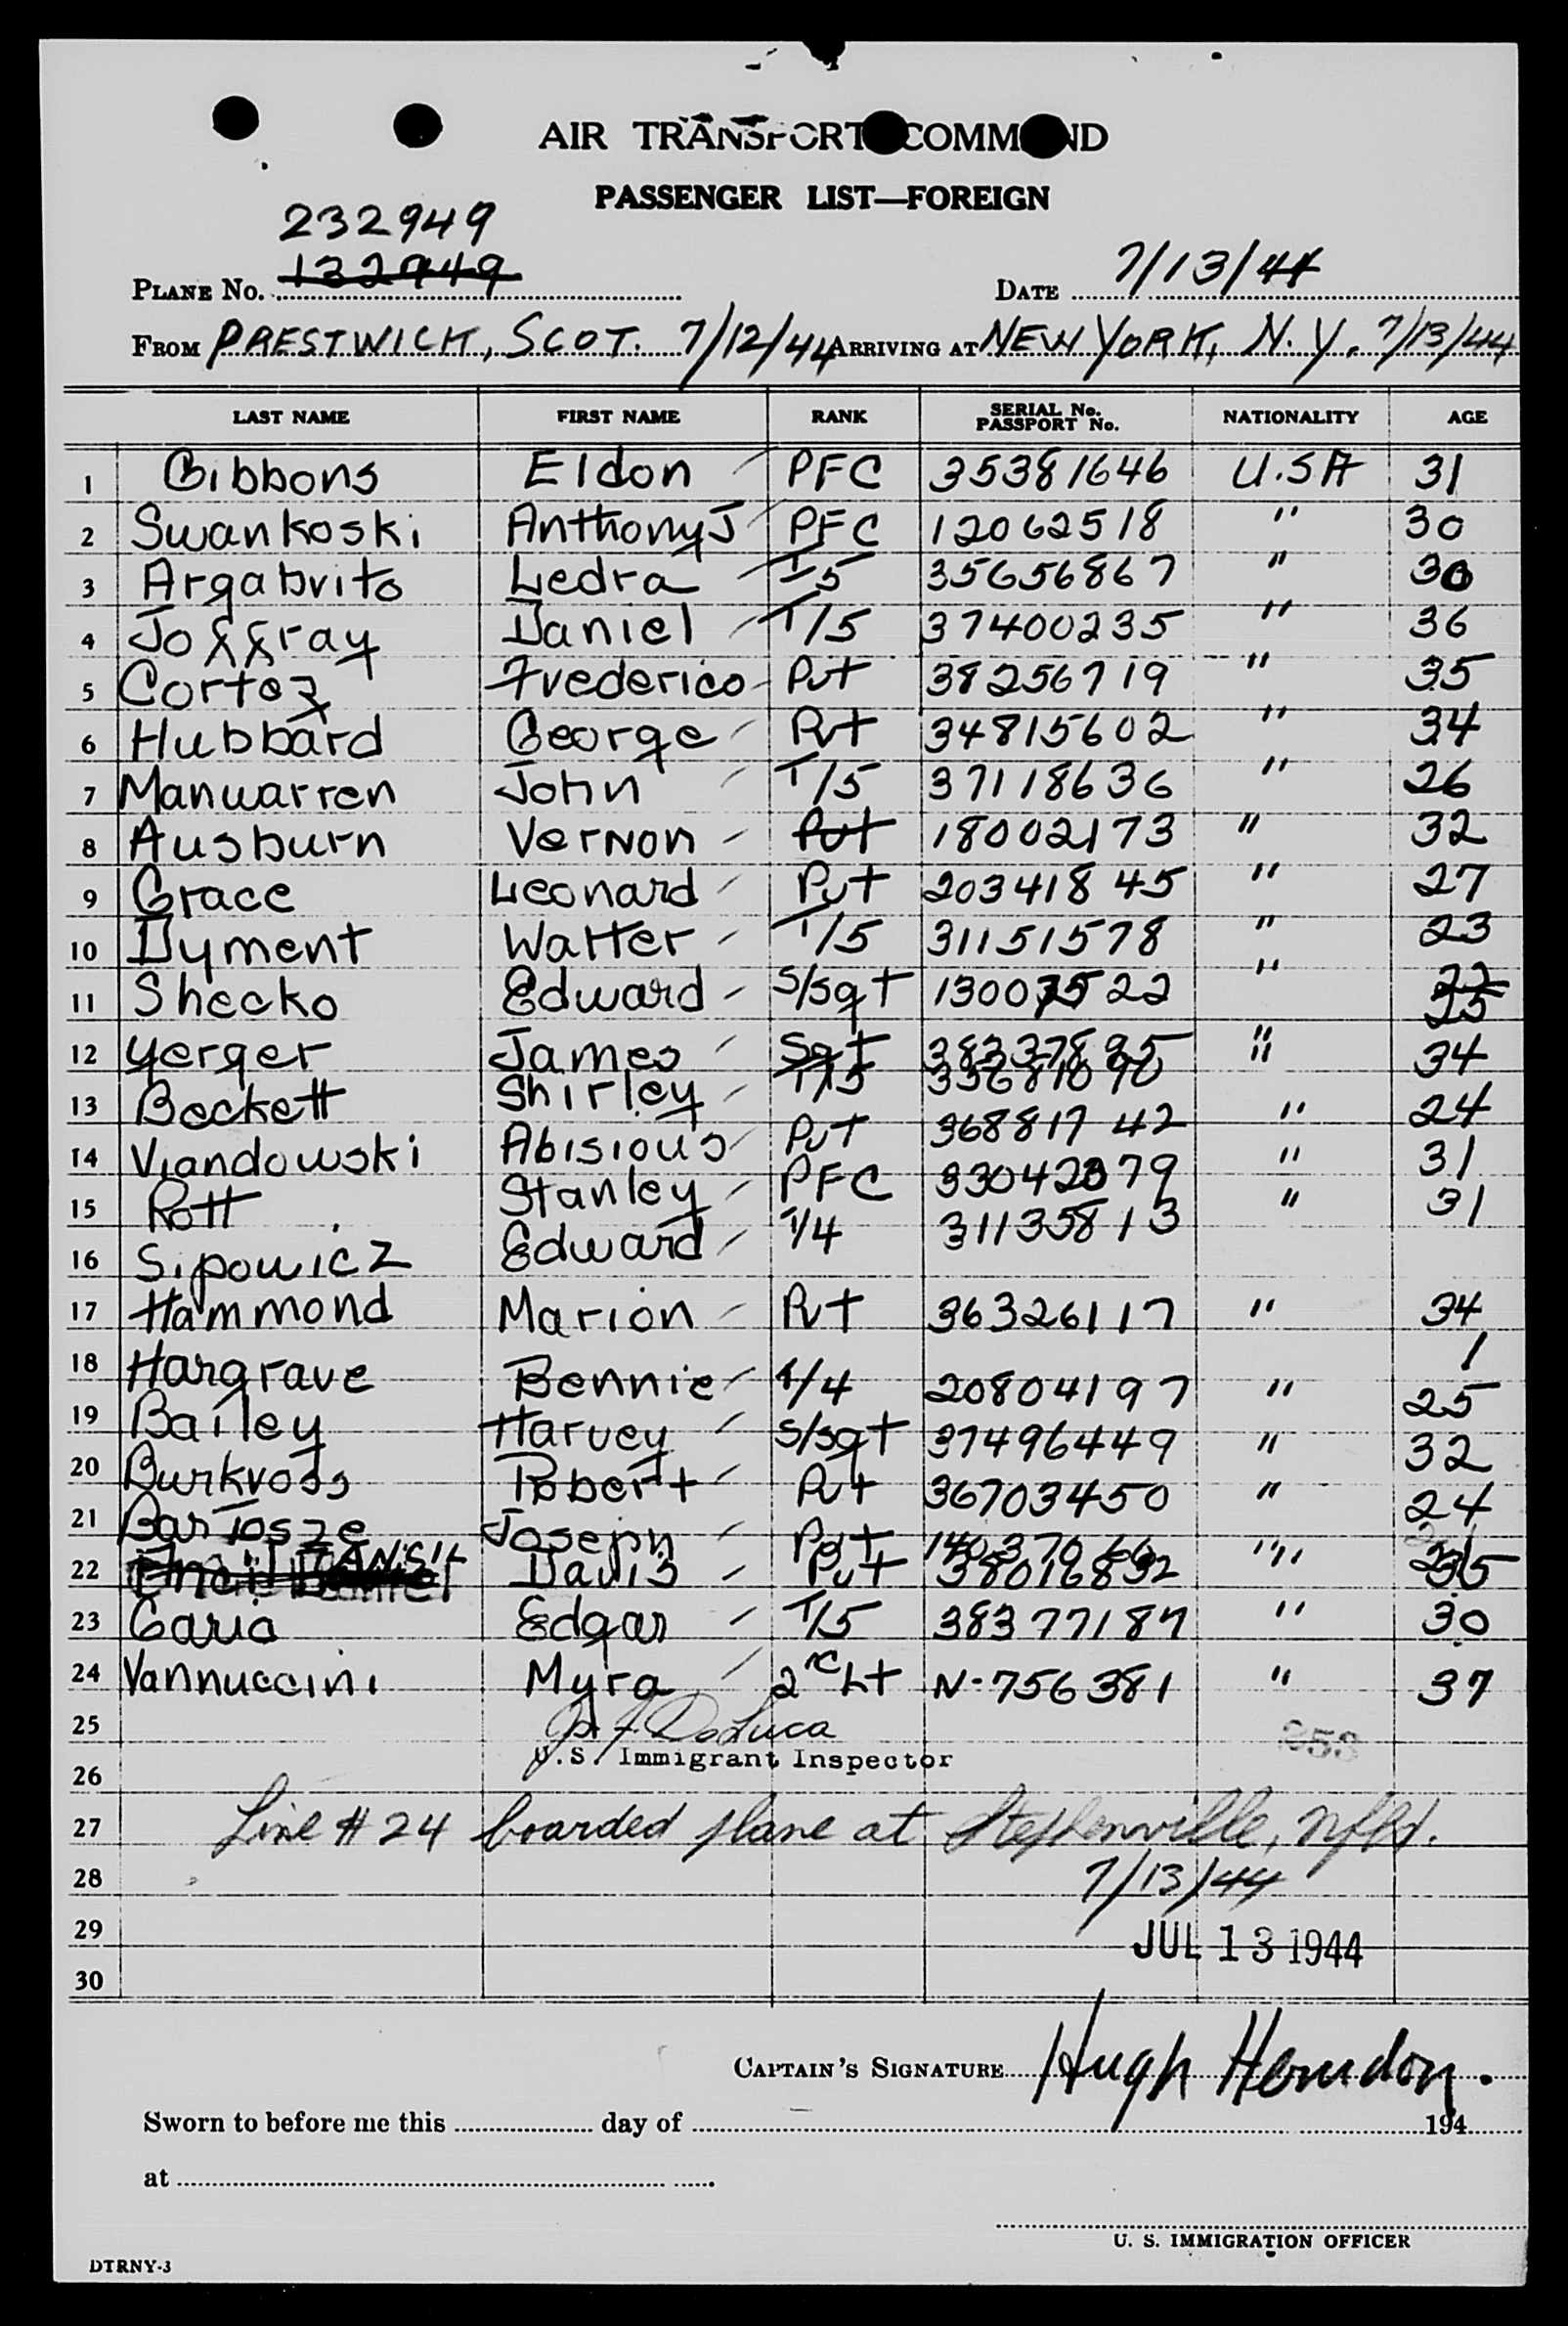 AIR TRANSPORT COMMAND
PASSENGER LIST—FOREIGN
232949
PLANE No. 132949 DATE 7/13/44
FROM PRESTWICK, SCOT. 7/12/44 ARRIVING AT NEW YORK, N.Y. 7/13/44
LAST NAME FIRST NAME RANK SERIAL No. PASSPORT No. NATIONALITY AGE
1 Gibbons Eldon PFC 35381646 U.SA 31
2 Swankoski Anthony J PFC 12062518 " 30
3 Argabrito Ledra T/5 35656867 " 30
4 Joffray Daniel T/5 37400235 " 36
5 Cortez Frederico Pvt 38256719 " 35
6 Hubbard George Pvt 34815602 " 34
7 Manwarren John T/5 37118636 " 26
8 Ausburn Vernon Pvt 18002173 " 32
9 Grace Leonard Pvt 20341845 " 27
10 Dyment Walter T/5 31151578 " 23
11 Shecko Edward S/Sgt 13007522 " 22 25
12 Yerger James Sgt 38337895 " 34
13 Beckett Shirley T/5 35681090 " 24
14 Viandowski Abisious Pvt 36881742 " 31
15 Rott Stanley PFC 33042379 " 31
16 Sipowicz Edward T/4 31135813
17 Hammond Marion Pvt 36326117 " 34
18 Hargrave Bennie T/4 20804197 " 25
19 Bailey Harvey S/Sgt 37496449 " 32
20 Burkvoss Robert Pvt 36703450 " 24
21 Bartosze Joseph Pvt 14037066 "
22 Davis Pvt 38016832 " 35
23 Garia Edgar T/5 38377187 " 30
24 Vannuccini Myra 2nd Lt N-756381 " 37
25 Jos. F. DeLuca
U.S. Immigrant Inspector
26
27 Line # 24 boarded plane at Stephenville, Nfld.
28 7/13/44
29 JUL 13 1944
30
CAPTAIN'S SIGNATURE Hugh Herndon.
Sworn to before me this day of 194
at .
U. S. IMMIGRATION OFFICER
DTRNY-3